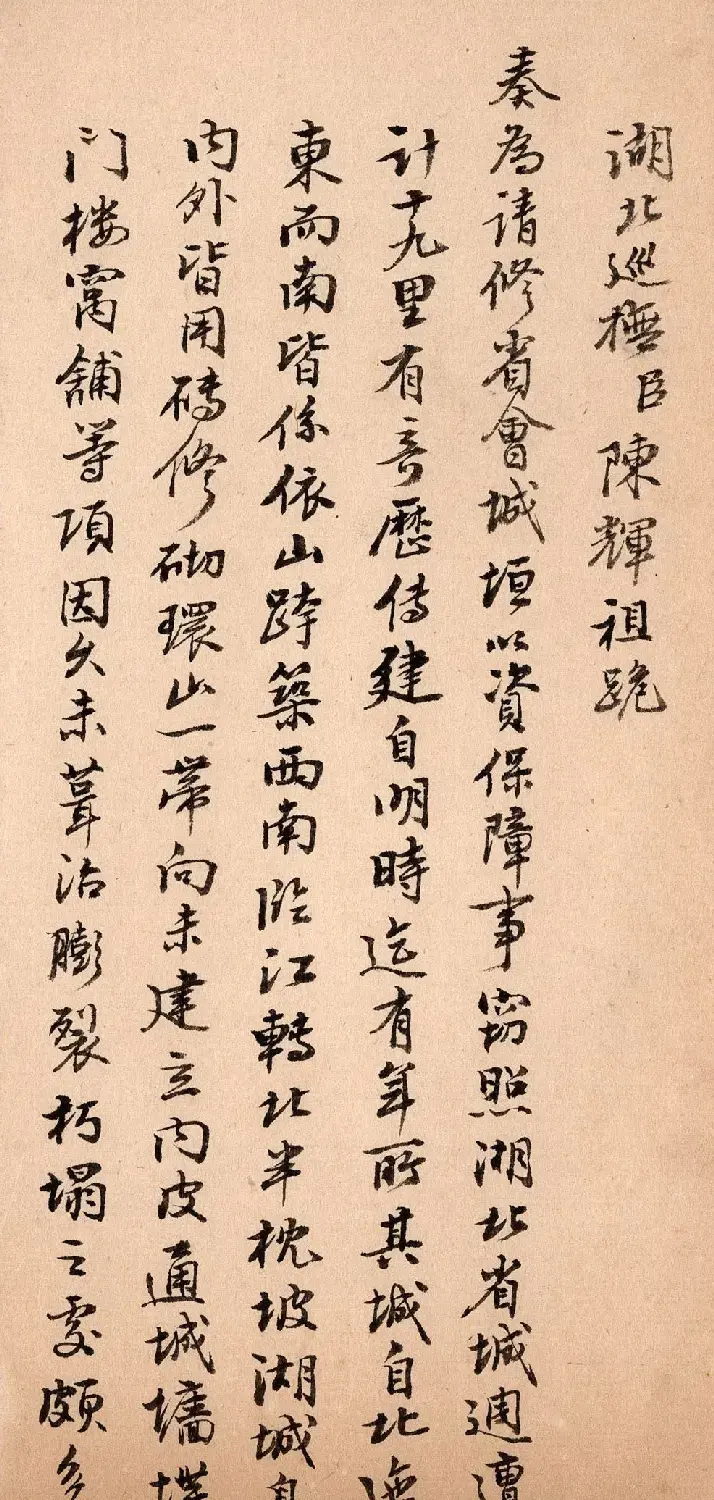 湖北巡撫臣陳輝祖跪
奏為請修省會城垣以資保障事竊照湖北省城週遭
計十九里有奇歷傳建自明時迄有年所其城自北
東而南皆係依山跨築西南臨江轉北半枕坡湖城身
內外皆用磚修砌環山一帶向未建立內皮通城墻垛
门楼窩舖等項因久未葺治膨裂朽塌之處頗多